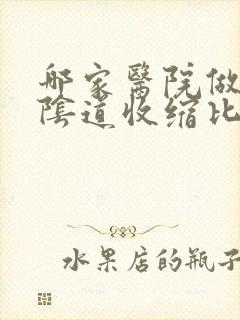 哪家醫院做
陰道收缩比
水果店的瓶子